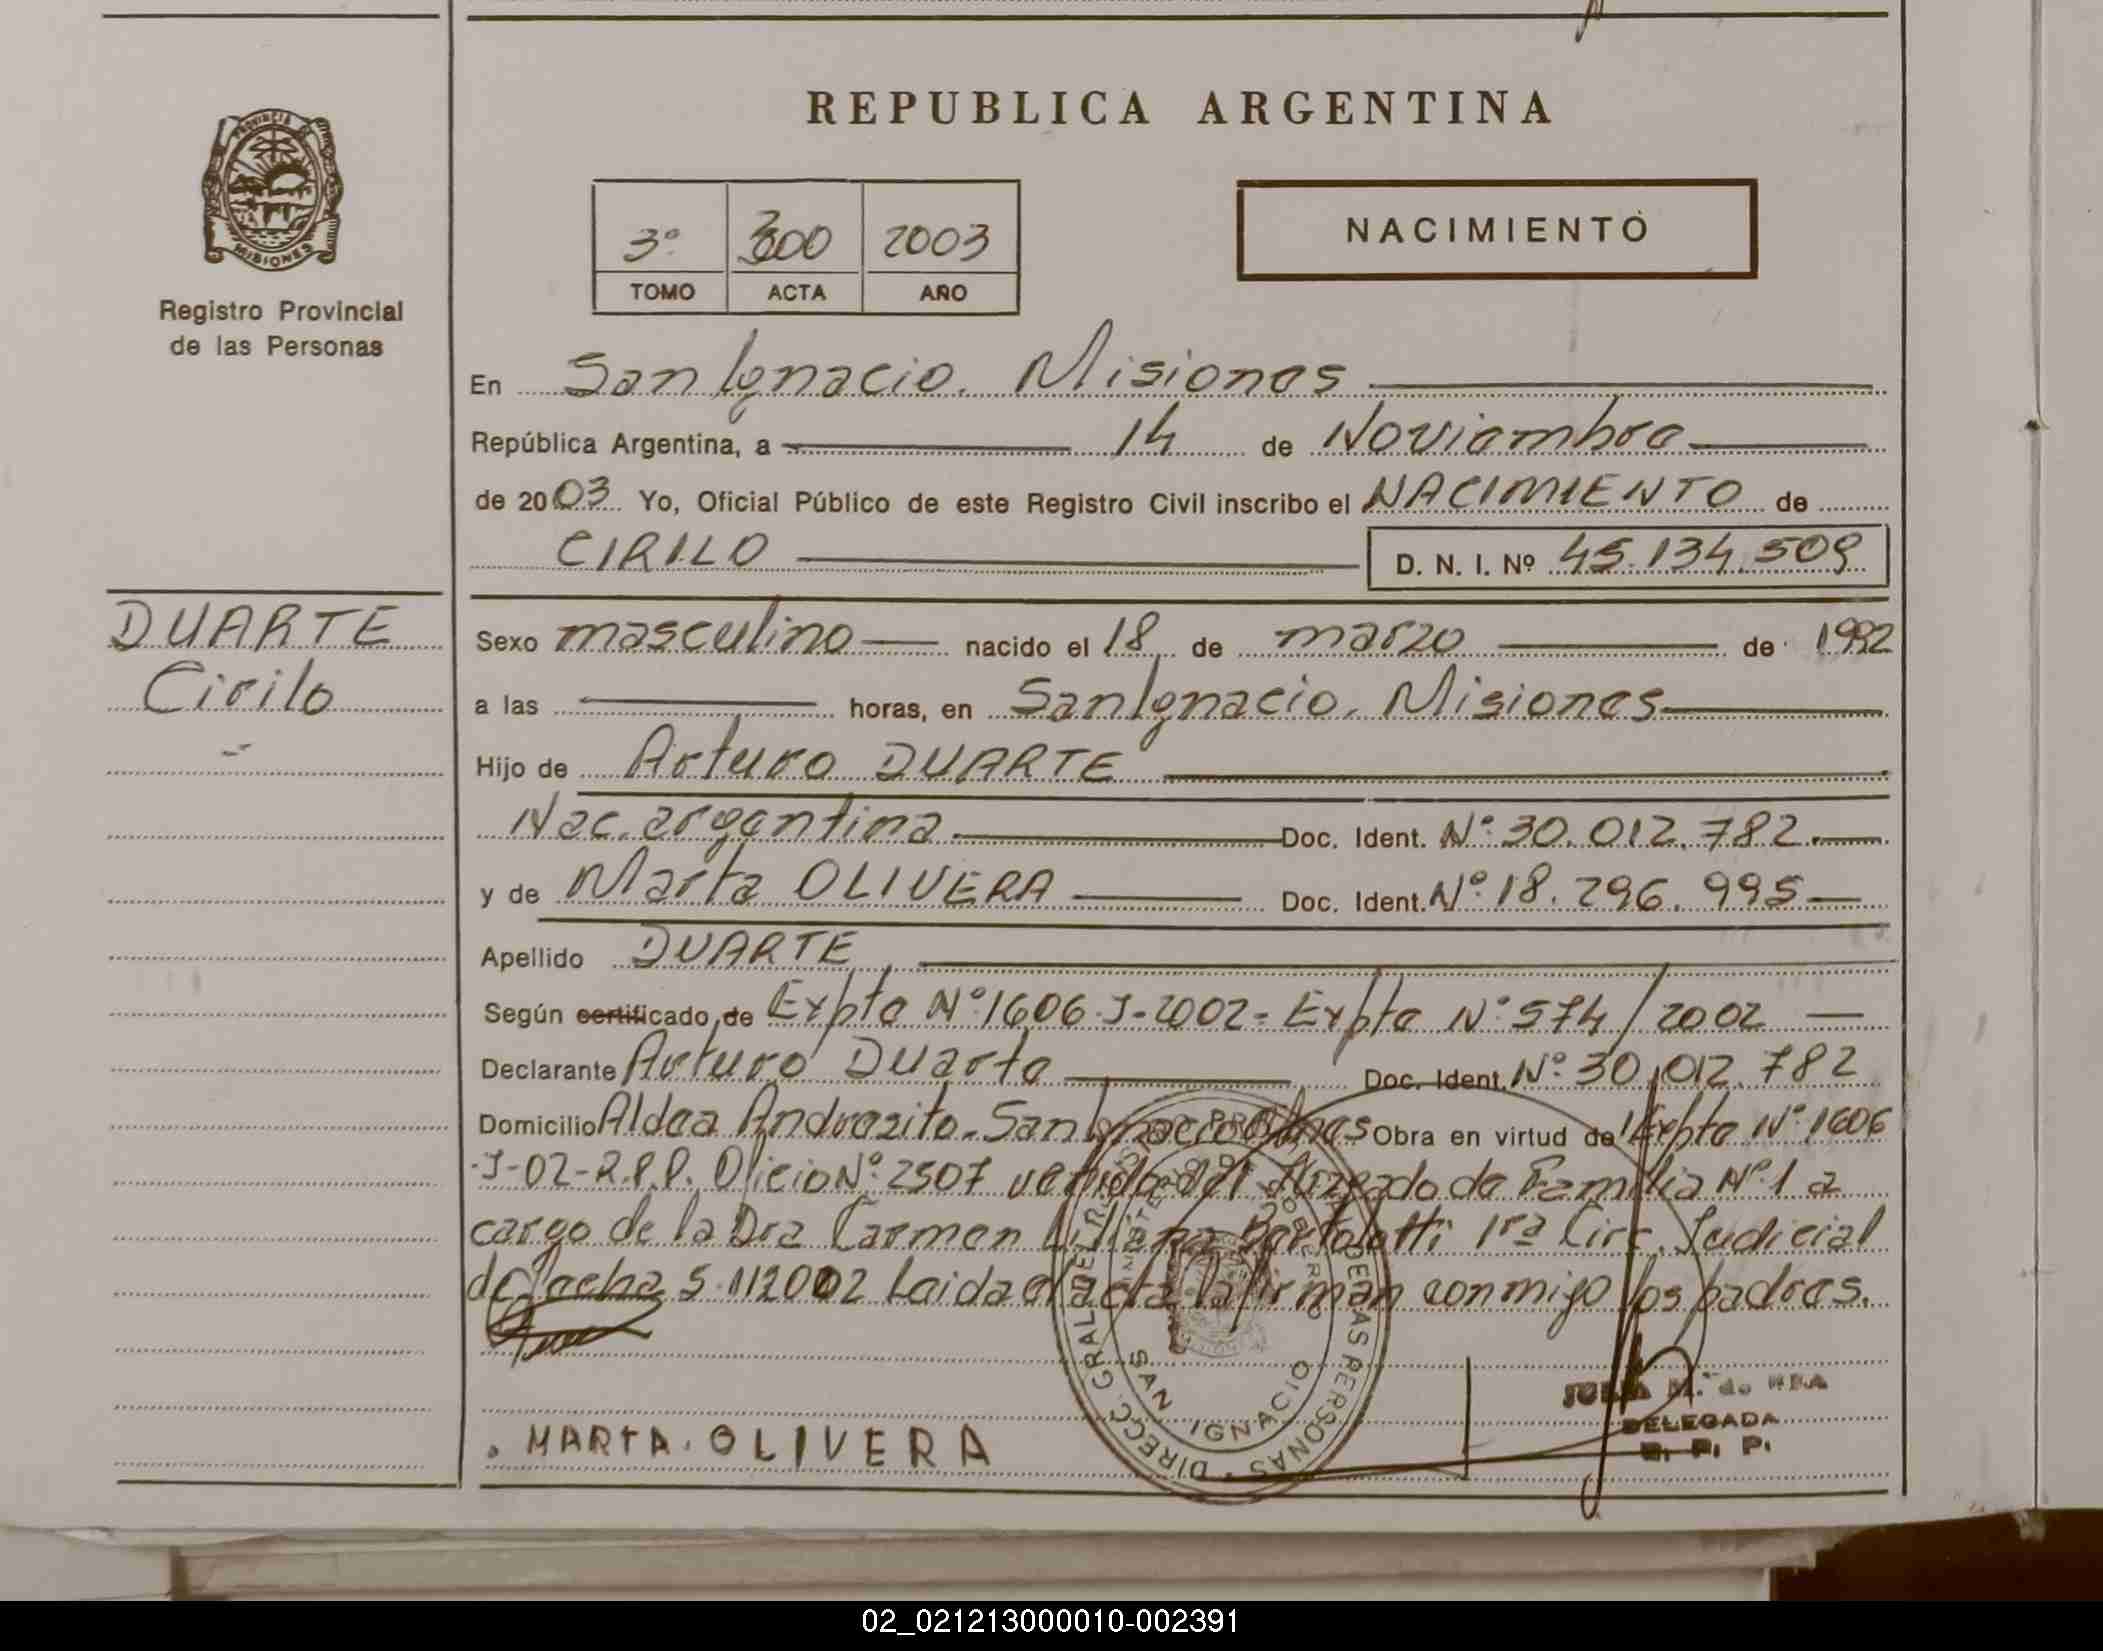 REPUBLICA ARGENTINA
PROVINCIA DE
MISIONES
Registro Provincial
de las Personas
3º 300 2003
TOMO ACTA AÑO
NACIMIENTO
En San Ignacio. Misiones
República Argentina, a 14 de Noviembre
de 2003 Yo, Oficial Público de este Registro Civil inscribo el NACIMIENTO de
CIRILO D. N. I. Nº 45.134.509
DUARTE
Cirilo
Sexo masculino nacido el 18 de marzo de 1992
a las horas, en San Ignacio. Misiones
Hijo de Arturo DUARTE
Nac. argentina Doc. Ident. Nº 30.012.782
y de Marta OLIVERA Doc. Ident. Nº 18.296.995
Apellido DUARTE
Según certificado de Expte Nº 1606-J-2002- Expte Nº 574/2002
Declarante Arturo Duarte Doc. Ident. Nº 30.012.782
Domicilio Aldea Andresito. San Ignacio Obra en virtud de Expte Nº 1606
-J-02-R.P.P. Oficio Nº 2507 del Juzgado de Familia Nº 1 a
cargo de la Dra Carmen Liliana Bertolotti 1ra Circ. Judicial
de fecha 5-112002 Leida el acta la firman conmigo los padres.
MARTA. OLIVERA
DIRECC. GRAL. DEL REGISTRO DE LAS PERSONAS
MINISTERIO DE GOBIERNO
SAN IGNACIO
DELEGADA
R. P. P.
02_021213000010-002391